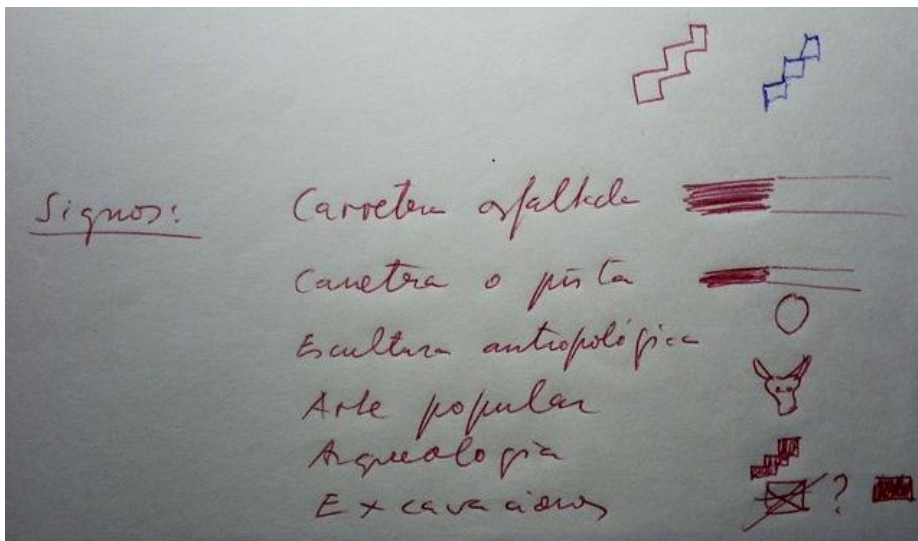 Signos:
Carretera asfaltada
Carretera o pista
Escultura antropológica
Arte popular
Arqueología
Excavaciones ?